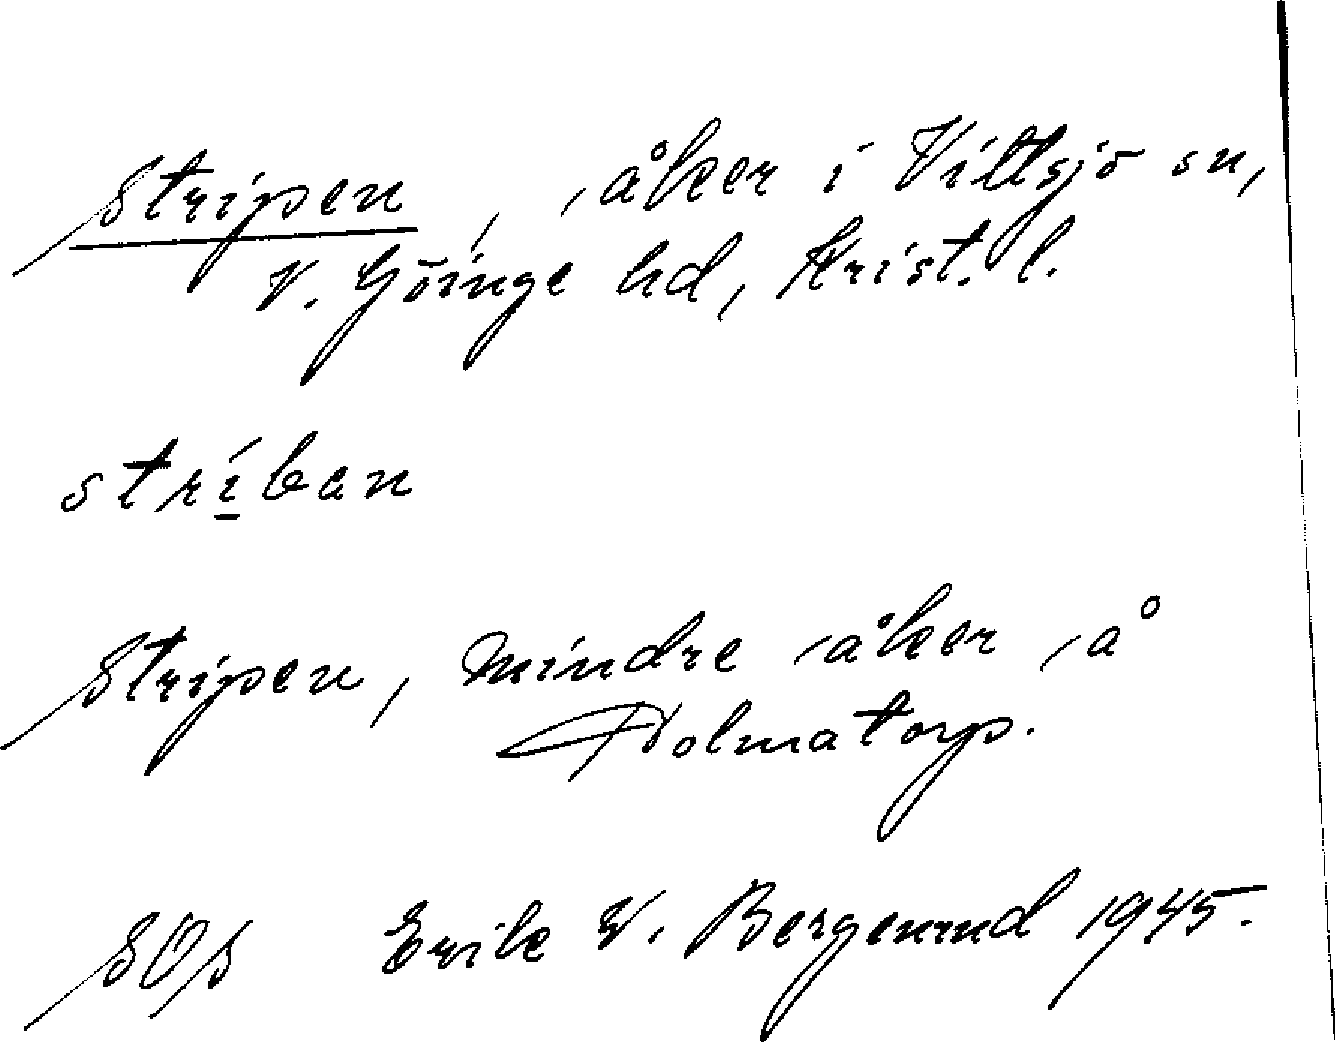 Stripen, åker i Vittsjö sn,
V. Göinge hd, Krist. l.
stríban
Stripen, mindre åker å
Holmatorp.
SOS Erik W. Bergenrud 1945.